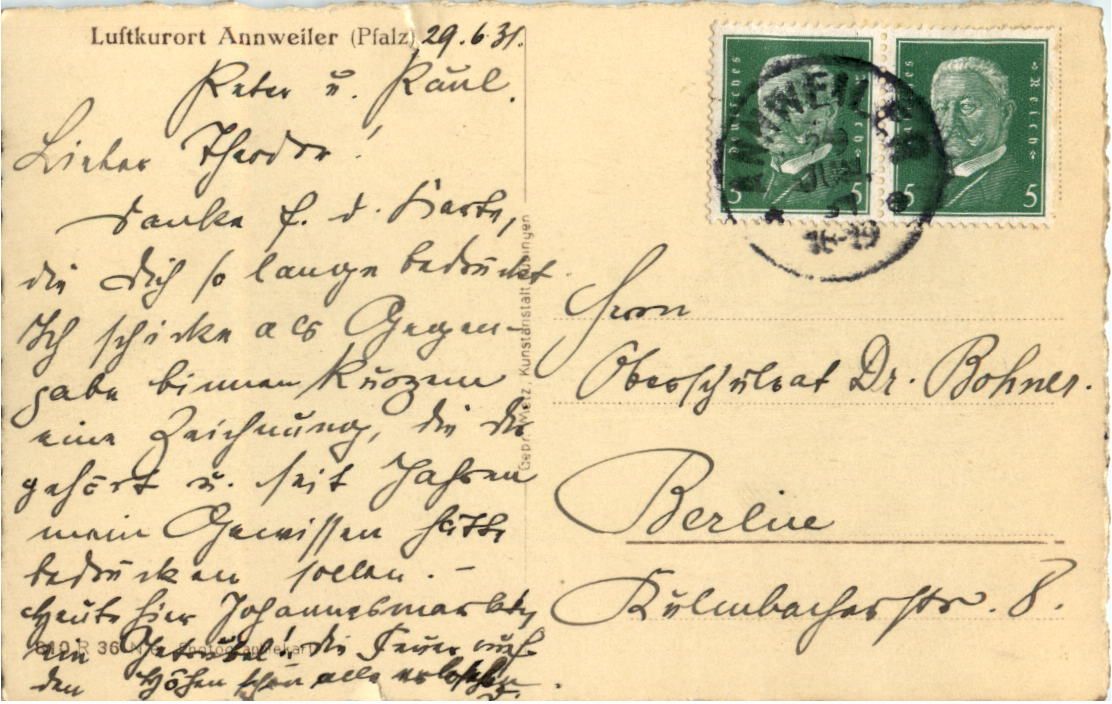 Luftkurort Annweiler (Pfalz) 29.6.31.
Peter u. Paul.
Lieber Theodor!
Danke f. d. Karte,
die Dich so lange bedrückt
Ich schicke als Gegen-
gabe binnen Kurzem
eine Zeichnung, die Dir
gehört u. seit Jahren
mein Gewissen hätte
bedrücken sollen. –
Heute hier Johannesmarkt,
ein Getrubel! die Feuer auf
den Höhen schon alle erloschen.
810 R 36
Gebr. Metz, Kunstanstalt, Tübingen
Deutsches Reich
5 5
Deutsches Reich
5 5
ANNWEILER
29
JUN.
31
18-19
Herrn
Oberschulrat Dr. Bohner.
Berlin
Kulmbacherstr. 8.